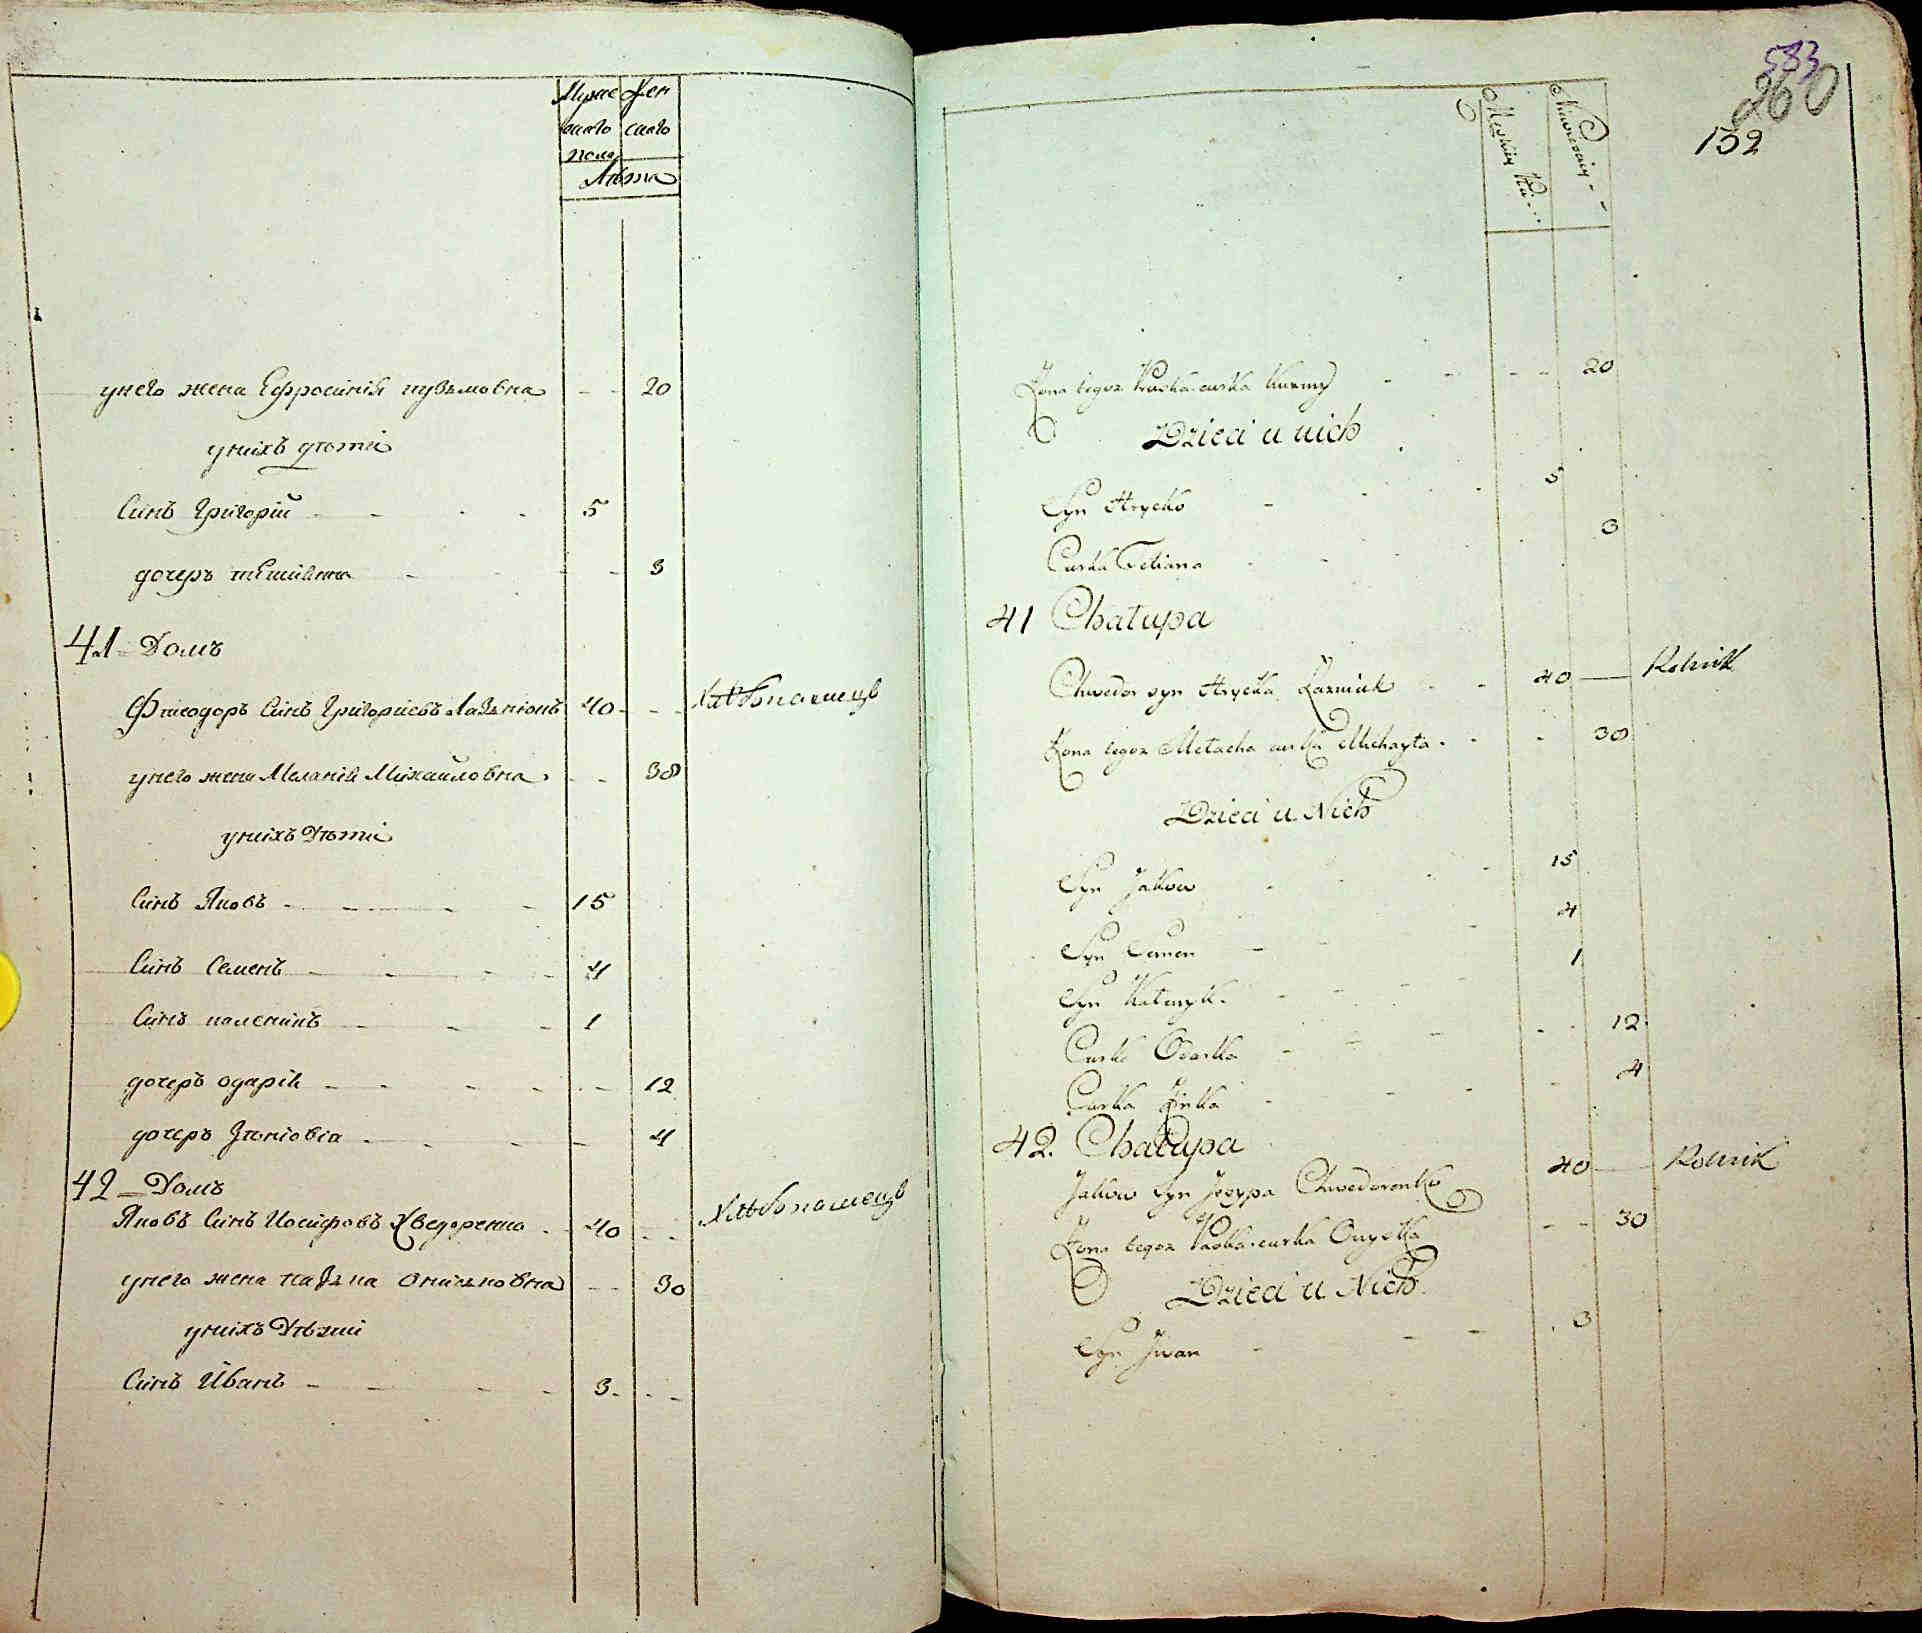 Мужес
каго
полу
Жен
скаго
Лѣта
у него жена Ефросинія кузьмовна - - 20
у нихъ дѣти
Синъ Григорій - - - - 5
дочеръ тетияна - - - - 3
41 - Домъ
Фиеодоръ Синъ Григориевъ Лазнюкъ 40 - - - Хлѣбопашецъ
у него жена Маланія Михайловна - - 38
у нихъ Дѣти
Синъ Яковъ - - - - - 15
Синъ Семенъ - - - - - 4
Синъ каленикъ - - - - 1
дочеръ одарія - - - - - - 12
дочеръ Зѣновіа - - - - - 4
42 - Домъ
Яковъ Синъ Иосифовъ Хведоренко - 40 - - Хлѣбопашецъ
у него жена Параска Оникѣовна - - 30
у нихъ Дѣти
Синъ Иванъ - - - - - 3 - - -
583
260
132
Męskiey Płci
Niewiesciey - -
Żona tegoz Pruska curka Kuzmy - - - - 20
Dzieci u nich
Syn Hrycko - - - 5
Curka Tetiana - - - 3
41 Chałupa
Chwedor syn Hrycka Łazniuk - - 40 — Rolnik
Żona tegoz Małacha curka Michayła - - - 38
Dzieci u Nich
Syn Jakow - - - - 15
Syn Semen - - 4
Syn Kalenyk - - - - 1
Curka Odarka - - - - - 12
Curka Zińka - - - - 4
42. Chałupa
Jakow Syn Jozypa Chwedorenko 40 — Rolnik
Żona tegoz Paska curka Onyska - - 30
Dzieci u Nich
Syn Jwan - - - 3